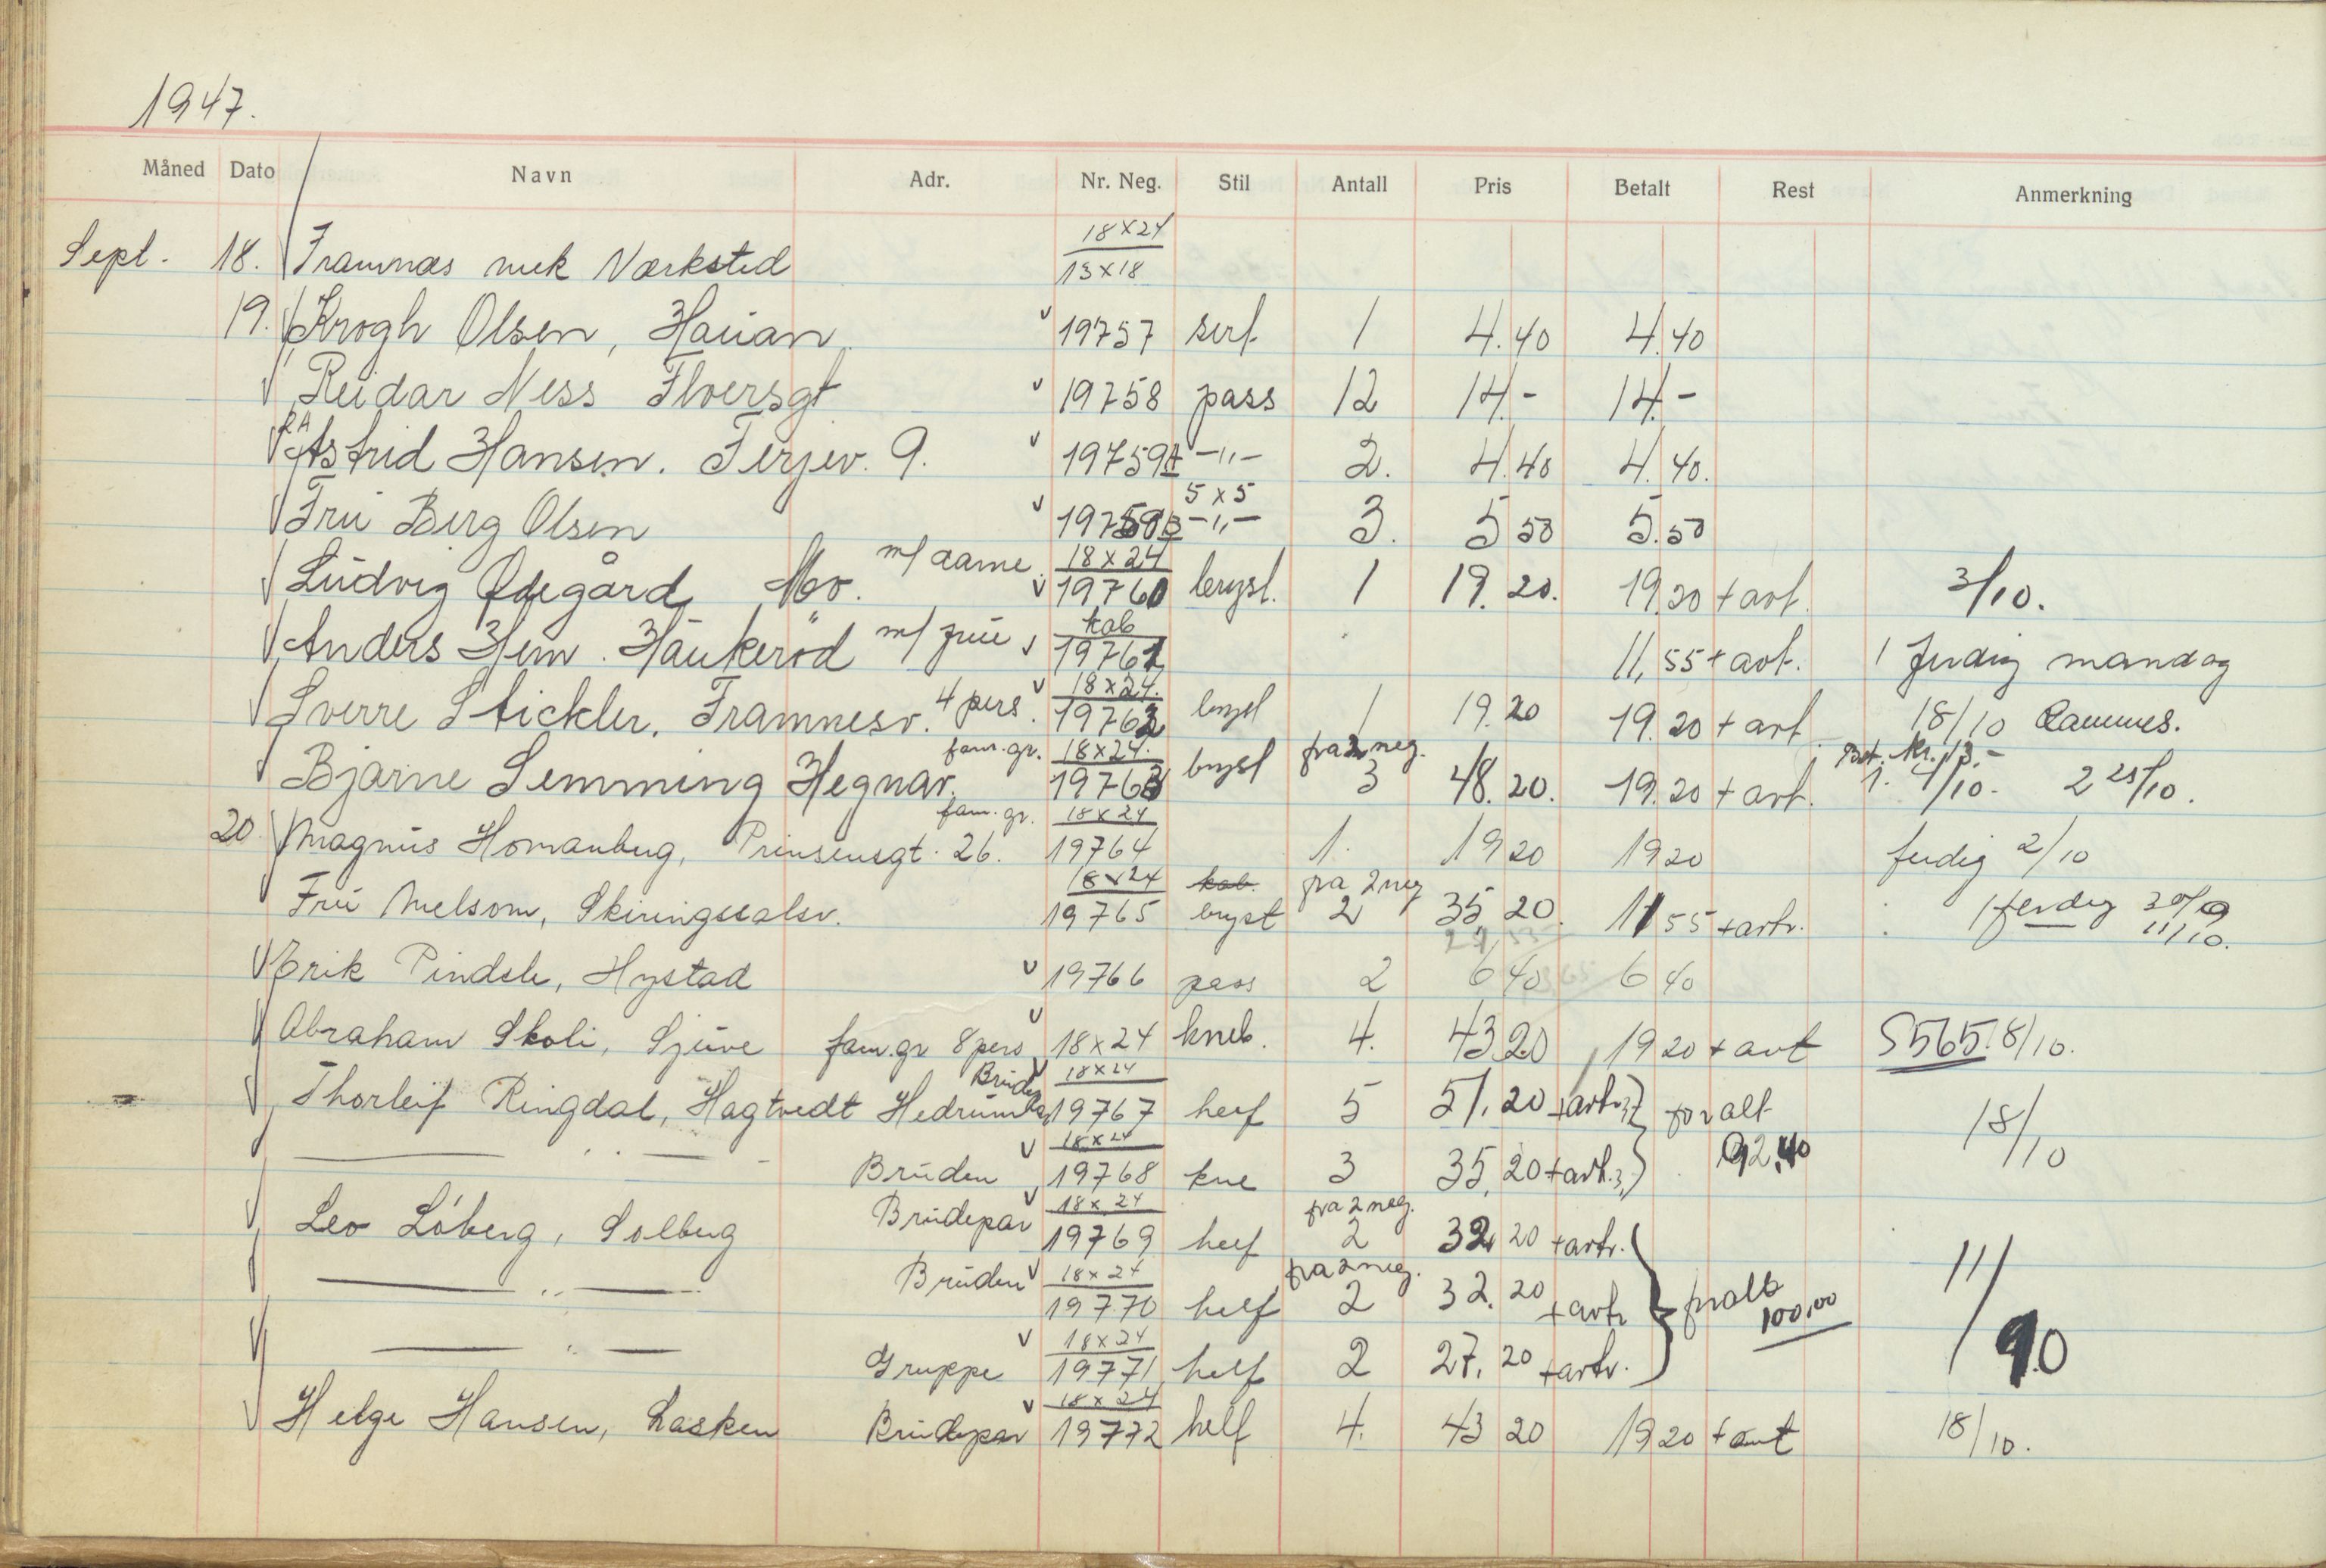 1947.
Måned Dato Navn Adr. Nr. Neg. Stil Antall Pris Betalt Rest Anmerkning
Sept. 18. Framnæs mek Værksted 18x24 13x18
19. Krogh Olsen, Hauan. 19757 serf 1 4.40 4.40
Reidar Ness Elversgt 19758 pass 12 14.- 14.-
Astrid Hansen. Ferjev. 9. 19759A -"- 2. 4.40 4.40.
Fru Berg Olsen 19759B 5x5 -"- 3. 5 50 5.50
Ludvig Ødegård Mo. m/ dame 18x24 19760 bryst. 1 19.20. 19.20 + avt. 3/10.
Anders Hem. Haukerød m/ frue kab 19761 11,55 + avt. 1 ferdig mandag
Sverre Stickler, Framnesv. 4 pers. 18x24. 19762 bryst 1 19.20 19.20 + avt 18/10 Rammes.
Bet. kr. 13.-
Bjarne Lemming Hegnav. fam. gr. 18x24. 19763 bryst fra 2 neg. 3 48.20. 19.20 + avt. 1. 4/10. 2 25/10.
20. Magnus Homanberg, Prinsensgt. 26. fam. gr. 18x24 19764 1. 19 20 19 20 ferdig 2/10
Fru Melsom, Skiringssalsv. 18x24 19765 kab. bryst fra 2 neg 2 35,20. 11 55 + avtr. 1 ferdig 30/9 11/10.
Erik Pindsle, Hystad 19766 pass 2 6 40 6 40
Abraham Skoli, Sjuve fam. gr 8 pers 18x24 kneb. 4. 43.20 19 20 + avt S565. 8/10.
Thorleif Ringdal, Hagtvedt Hedrum Brudepar 18x24 19767 helf 5 51.20 + avtr. for alt 92,40 18/10
— " — Bruden 18x24 19768 kne 3 35,20 + avtr.
Leo Löberg, Solberg Brudepar 18x24 19769 helf fra 2 neg. 2 32,20 + avtr.
— " — Bruden 18x24 19770 helf fra 2 neg. 2 32.20 + avtr for alt 100,00 11/10
— " — Gruppe 18x24 19771 helf 2 27,20 + avtr.
Helge Hansen, Lasken Brudepar 18x24 19772 helf 4. 43 20 19 20 + avt 18/10.